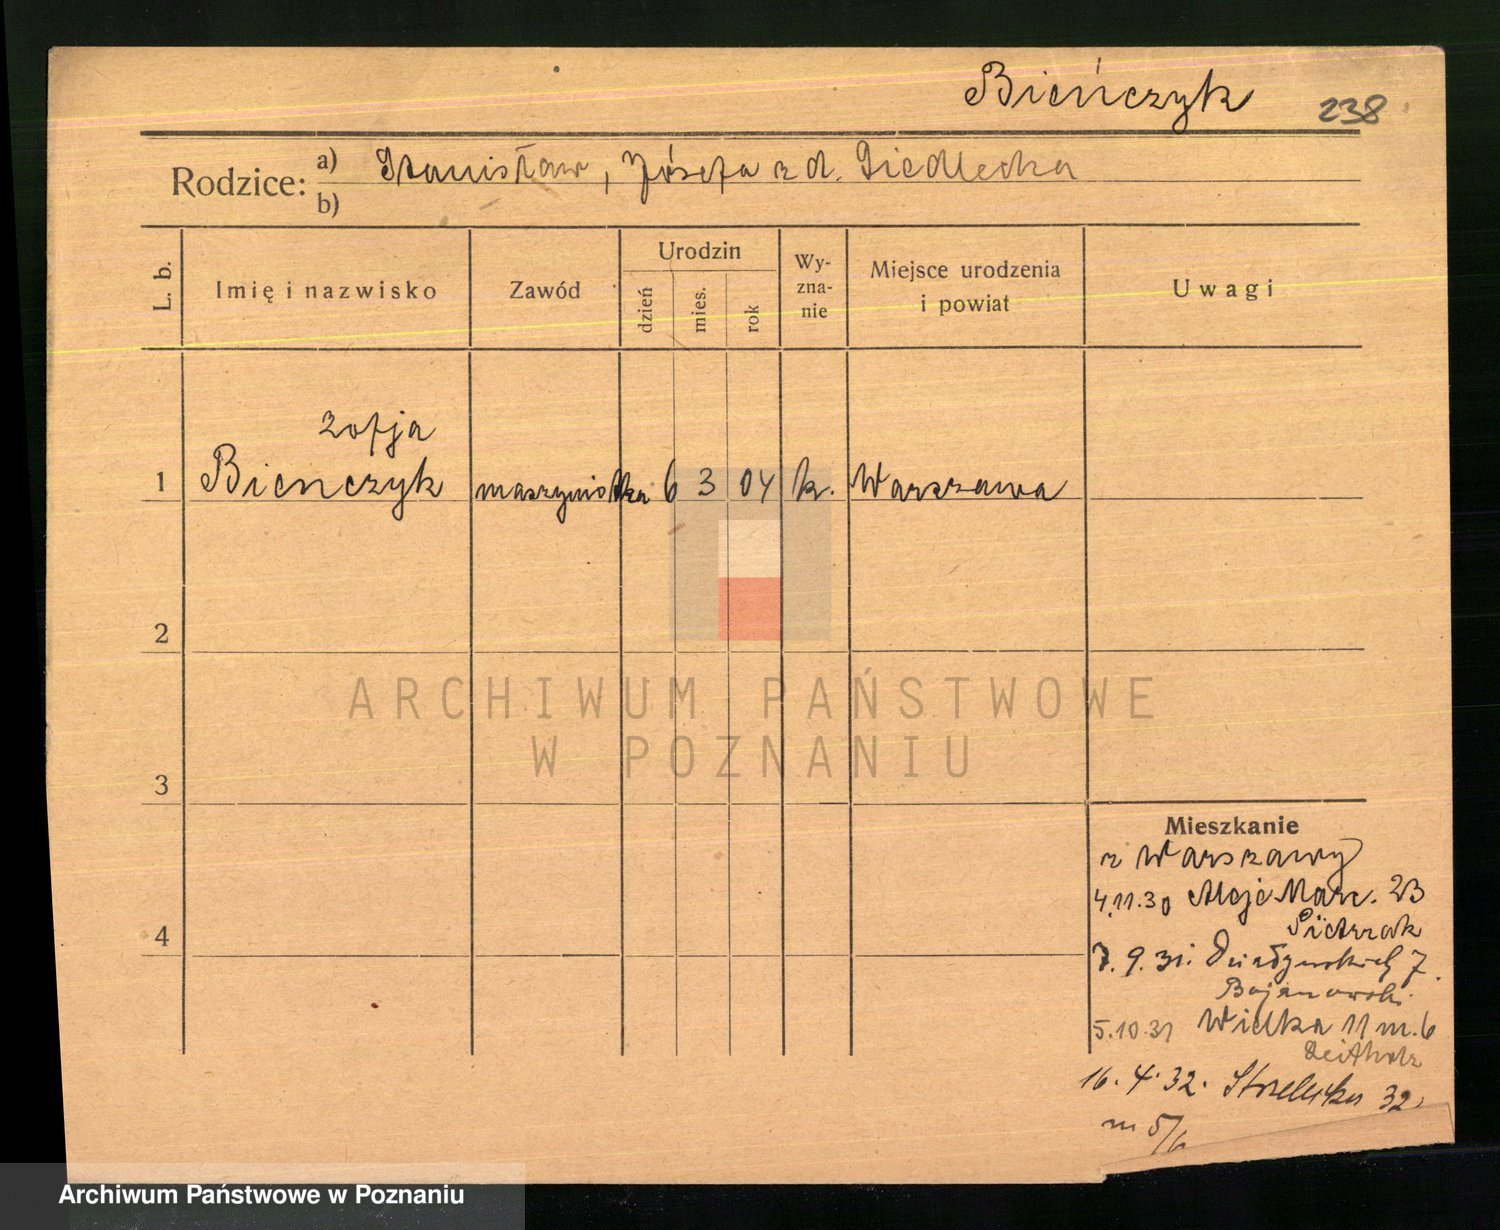 Bieńczyk 238
Rodzice: a) Stanisław, Józefa z d. Siedlecka
b)
L. b. Imię i nazwisko Zawód Urodzin dzień mies. rok Wy-zna-nie Miejsce urodzenia i powiat Uwagi
Zofja
1 Bieńczyk maszynistka 6 3 04 k. Warszawa
2
ARCHIWUM PAŃSTWOWE
W POZNANIU
3
Mieszkanie
z Warszawy
4.11.30 Aleje Marc. 2B
Pietrzak
4
7.9.31. Działyńskich 7.
Bojanowski
5.10.31 Wielka 11 m. 6
16.4.32. Strzelecka 32.
m 5/6
Archiwum Państwowe w Poznaniu